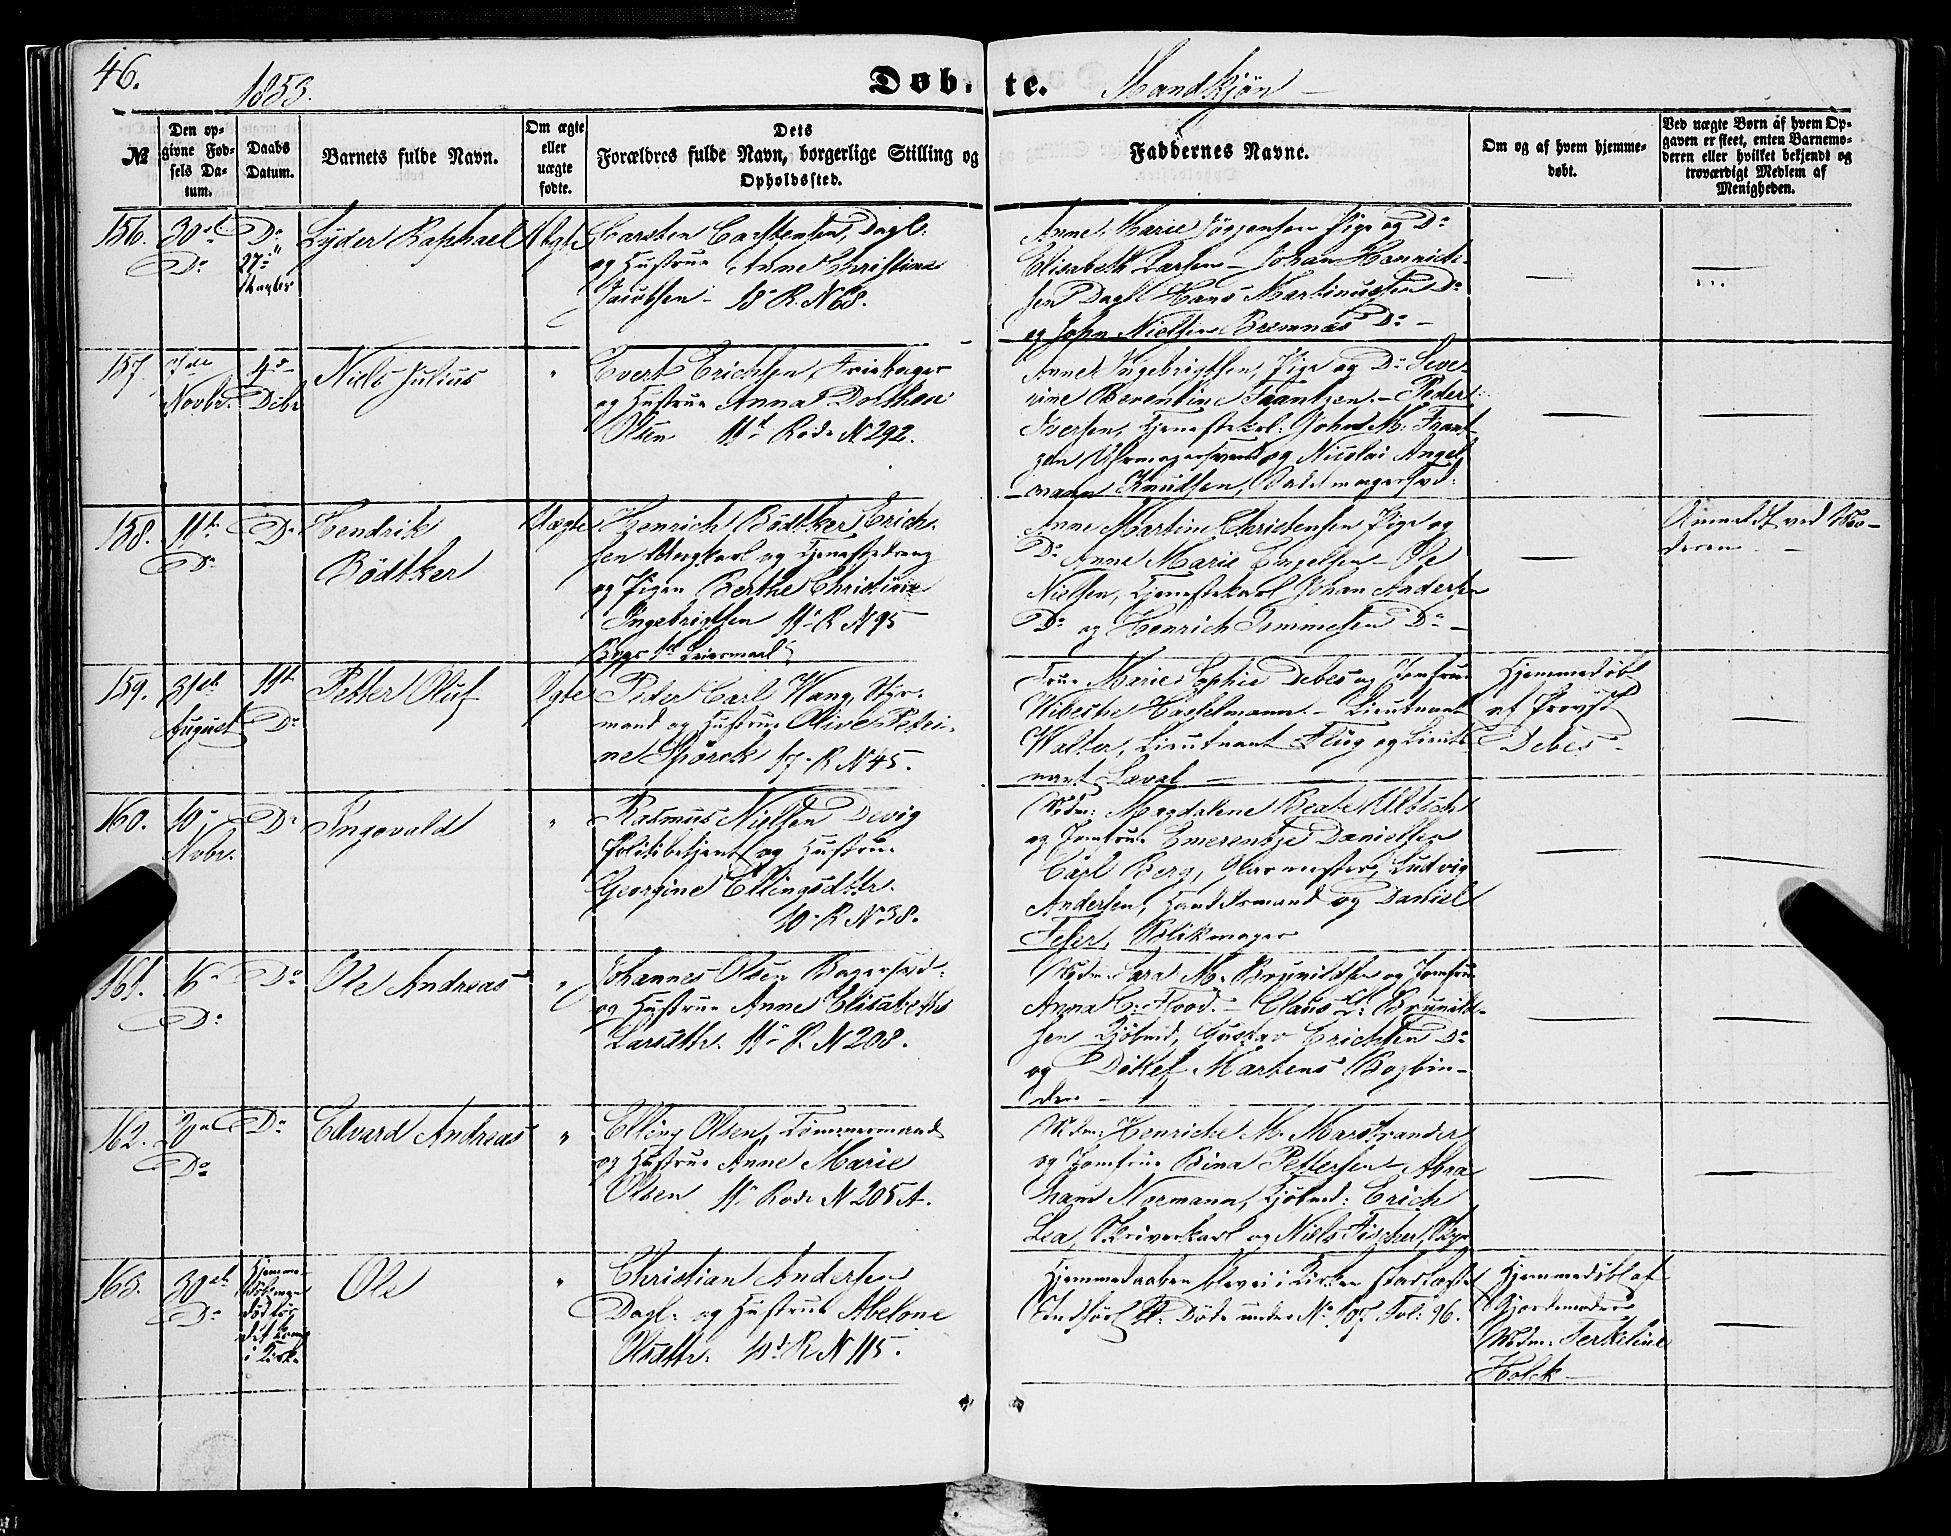 46.
1853.
Døbte.
Mandkjøn
№
Den op-
givne Fød-
sels Da-
tum.
Daabs
Datum.
Barnets fulde Navn.
Om ægte
eller
uægte
fødte.
Dets
Forældres fulde Navn, borgerlige Stilling og
Opholdssted.
Faddernes Navne.
Om og af hvem hjemme-
døbt.
Ved uægte Børn af hvem Op-
gaven er skeet, enten Barnemo-
deren eller hvilket bekjendt og
troværdigt Medlem af
Menigheden.
156.
30te
Do
Do
27de
Lyder Raphael
Ægte
Carsten Carstensen, Dagl.
og Hustrue Anne Christine
Jacobsen 18 R. N 68.
Anne Marie Jørgensen Pige og Do
Elisabeth Larsen - Johan Henrich-
sen Dagl. Hans Martinussen Do
og John Nielsen Bremnæs Do -
157.
Novbr.
4de
Dcbr
Niels Julius
"
Evert Erichsen,
og Hustrue Anna Dorthea
Olsen 11te Rode N 292.
Anne Ingebrigtsen, Pige og Do Seve-
rine Berentine Frantzen - Peder
Iversen, Tjenestekarl. John M. Frant-
zen, Uhrmagersvend og Nicolai Angel
mann Knudsen,
158.
11te
Do
Do
Hendrik
Bödtker
Uægte
Henrich Bödtker Erich-
sen Ungkarl og Tjenestedreng
og Pigen Berthe Christine
Ingebrigtsen 11 R N 95
Begges 1ste Leiermaal
Anne Martine Christensen Pige og
Do Anne Marie Engelsen - Ole
Nielsen, Tjenestekarl Johan Andersen
Do og Henrich Tommesen Do -
Anmeldt ved Mo-
deren -
159.
31te
August
11te
Do
Petter Oluf
Ægte
Peder Carl Wang, Styr-
mand og Hustrue Olive Petri-
ne Spörck 17 R N 45.
Frue Marie Sophie Debes og Jomfrue
Wibecke Hasselmann. - Lieutnant
Walter, Lieutnant Flug og Lieut-
nant Laval -
Hjemmedøbt
af Provst
Debes -
160.
10
Novbr.
Do
Ingevald
"
Rasmus Nielsen Devig
Politibetjent og Hustrue
Georgine Ellingsdttr.
10 R N 38.
Mdm: Magdalene Beate
og Jomfrue Emerentze Danielsen
Carl Berg, Glarmester, Ludvig
Andersen, Handelsmand og Daniel
Feser, Blikmager
161.
16
Do
Do
Ole Andreas
"
Johannes Olsen Bagersvd:
og Hustrue Anne Elisabeth
Larsdttr. 11 R. N 208.
Mdm: Sara M. Brynildsen og Jomfrue
Anna C. Flood. - Claus L. Brunild-
sen Kjøbmd, Gustav Erichsen Do
og Ditlef Martens Bogbin-
der -
162.
20de
Do
Do
Edvard Andreas
"
Elling Olsen, Tømmermand
og Hustrue Anne Marie
Olsen 11 Rode N 205 A.
Mdm: Henriche M. Marstrander,
og Jomfrue Bina Pettersen - Abra
ham Normann, Kjøbmd: Erich
Lea, Skriverkarl og Niels Fischer,
163.
30te
Do
Ole
"
Christian Andersen
Dagl. og Hustrue Abelone
Olsdttr. 10 R N 115.
Hjemmedaaben blev ei i Kirken stadfæstet
Indført bl. Døde under No 107 Fol: 96.
Hjemmedøbt af
Gjordemoder
Mdm: Terkeline
Holck -